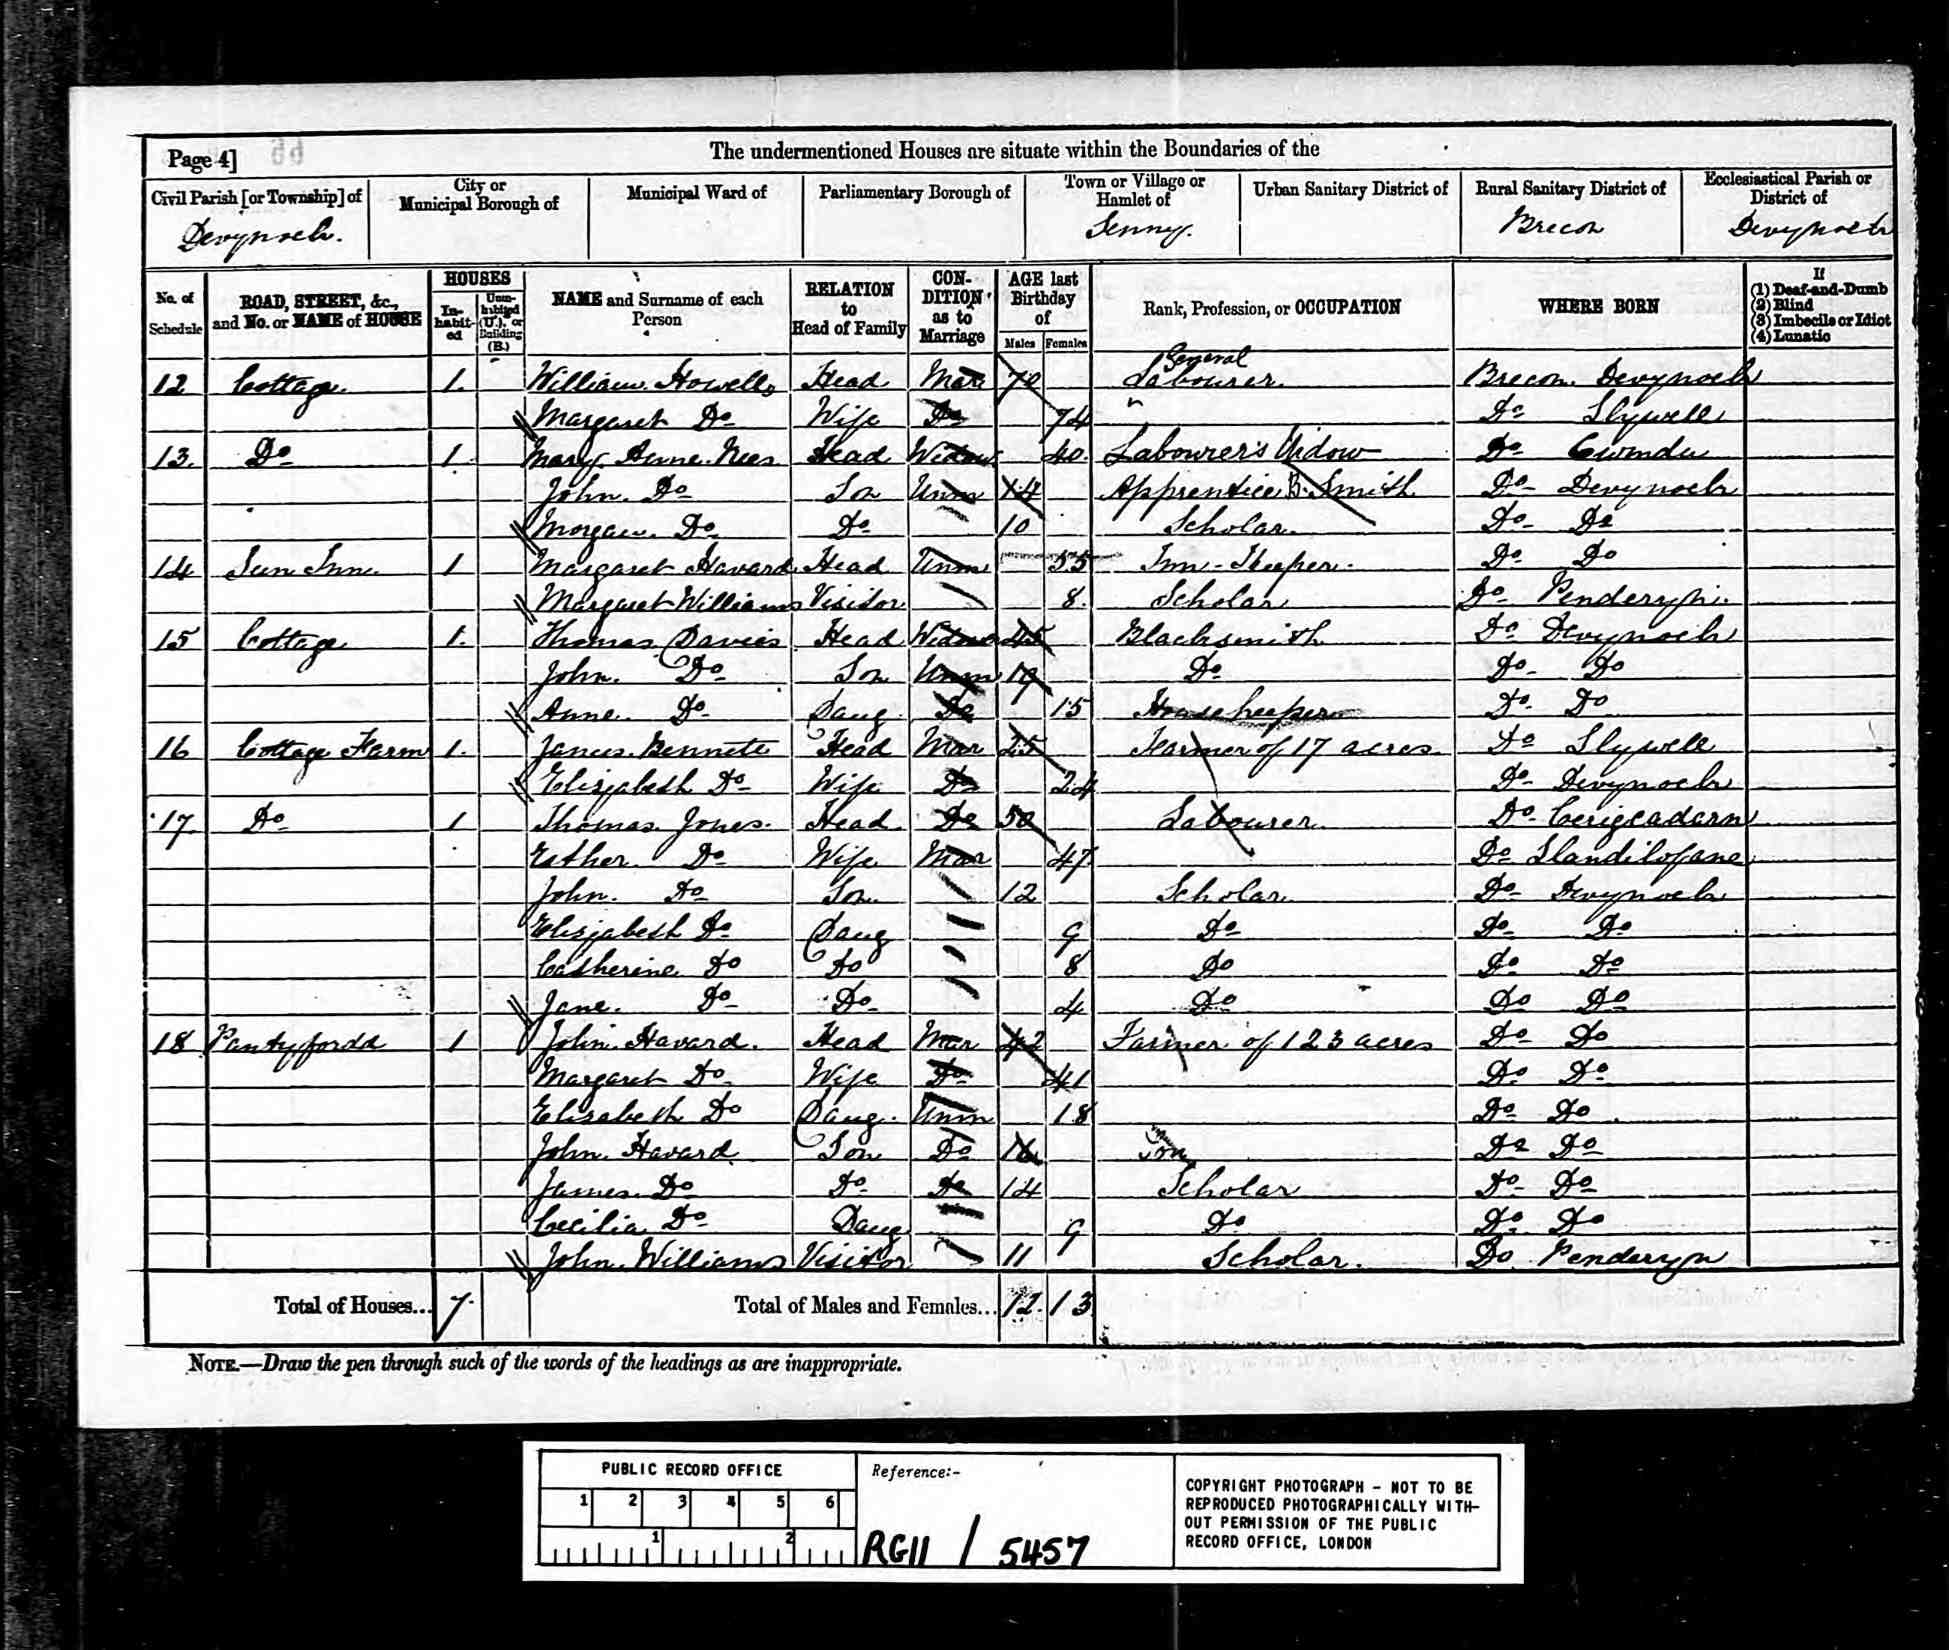 Page 4]
The undermentioned Houses are situate within the Boundaries of the
Civil Parish [or Township] of
City or Municipal Borough of
Municipal Ward of
Parliamentary Borough of
Town or Village or Hamlet of
Urban Sanitary District of
Rural Sanitary District of
Ecclesiastical Parish or District of
Devynock. Senny. Brecon Devynock
No. of Schedule
ROAD, STREET, &c., and No. or NAME of HOUSE
HOUSES
Inhabited
Uninhabited (U.), or Building (B.)
NAME and Surname of each Person
RELATION to Head of Family
CONDITION as to Marriage
AGE last Birthday of
Males Females
Rank, Profession, or OCCUPATION
WHERE BORN
If
(1) Deaf-and-Dumb
(2) Blind
(3) Imbecile or Idiot
(4) Lunatic
12 Cottage 1 William Howells Head Mar 70 General Labourer Brecon Devynock
Margaret Do Wife Do 74 Do Llywell
13 Do 1 Mary Anne Rees Head Widow 40 Labourer's Widow Do
John Do Son Unm 14 Apprentice B. Smith Do Devynock
Morgan Do Do 10 Scholar Do Do
14 Sun Inn 1 Margaret Havard Head Unm 55 Inn-Keeper Do Do
Margaret Williams Visitor 8 Scholar Do Penderyn
15 Cottage 1 Thomas Davies Head Widower 45 Blacksmith Do Devynock
John Do Son Unm 19 Do Do Do
Anne Do Daug Do 15 Housekeeper Do Do
16 Cottage Farm 1 James Bennett Head Mar 25 Farmer of 17 acres Do Llywell
Elizabeth Do Wife Do 24 Do Devynock
17 Do 1 Thomas Jones Head Do 50 Labourer Do Cerigcadarn
Esther Do Wife Mar 47 Do Llandilofane
John Do Son 12 Scholar Do Devynock
Elizabeth Do Daug 9 Do Do Do
Catherine Do Do 8 Do Do Do
Jane Do Do 4 Do Do Do
18 Pantyffordd 1 John Havard Head Mar 42 Farmer of 123 acres Do Do
Margaret Do Wife Do 41 Do Do
Elizabeth Do Daug Unm 18 Do Do
John Havard Son Do 16 Son Do Do
James Do Do Do 14 Scholar Do Do
Cecilia Do Daug 9 Do Do Do
John Williams Visitor 11 Scholar Do Penderyn
Total of Houses... 7 Total of Males and Females... 12 13
NOTE.—Draw the pen through such of the words of the headings as are inappropriate.
PUBLIC RECORD OFFICE
1 2 3 4 5 6
1 2
Reference:-
RG11 / 5457
COPYRIGHT PHOTOGRAPH - NOT TO BE
REPRODUCED PHOTOGRAPHICALLY WITH-
OUT PERMISSION OF THE PUBLIC
RECORD OFFICE, LONDON